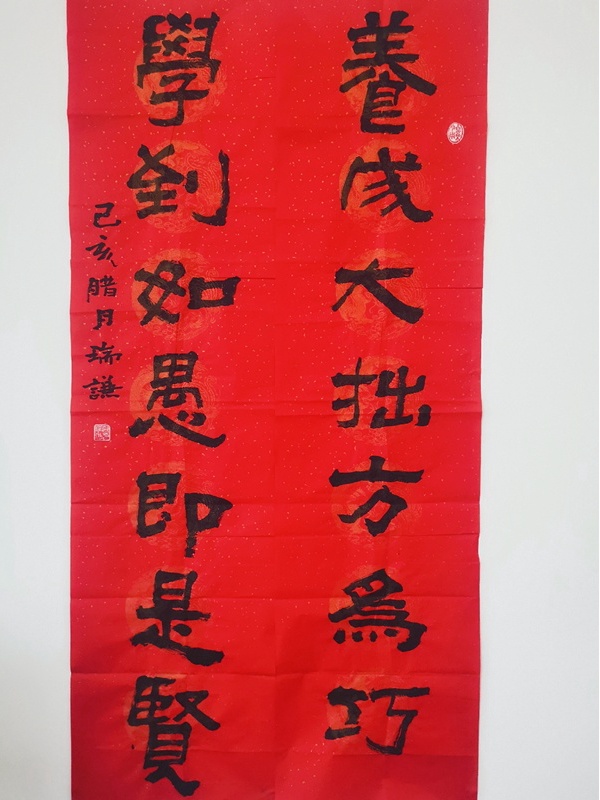 養成大拙方為巧
學到如愚即是賢
己亥腊月瑞謙